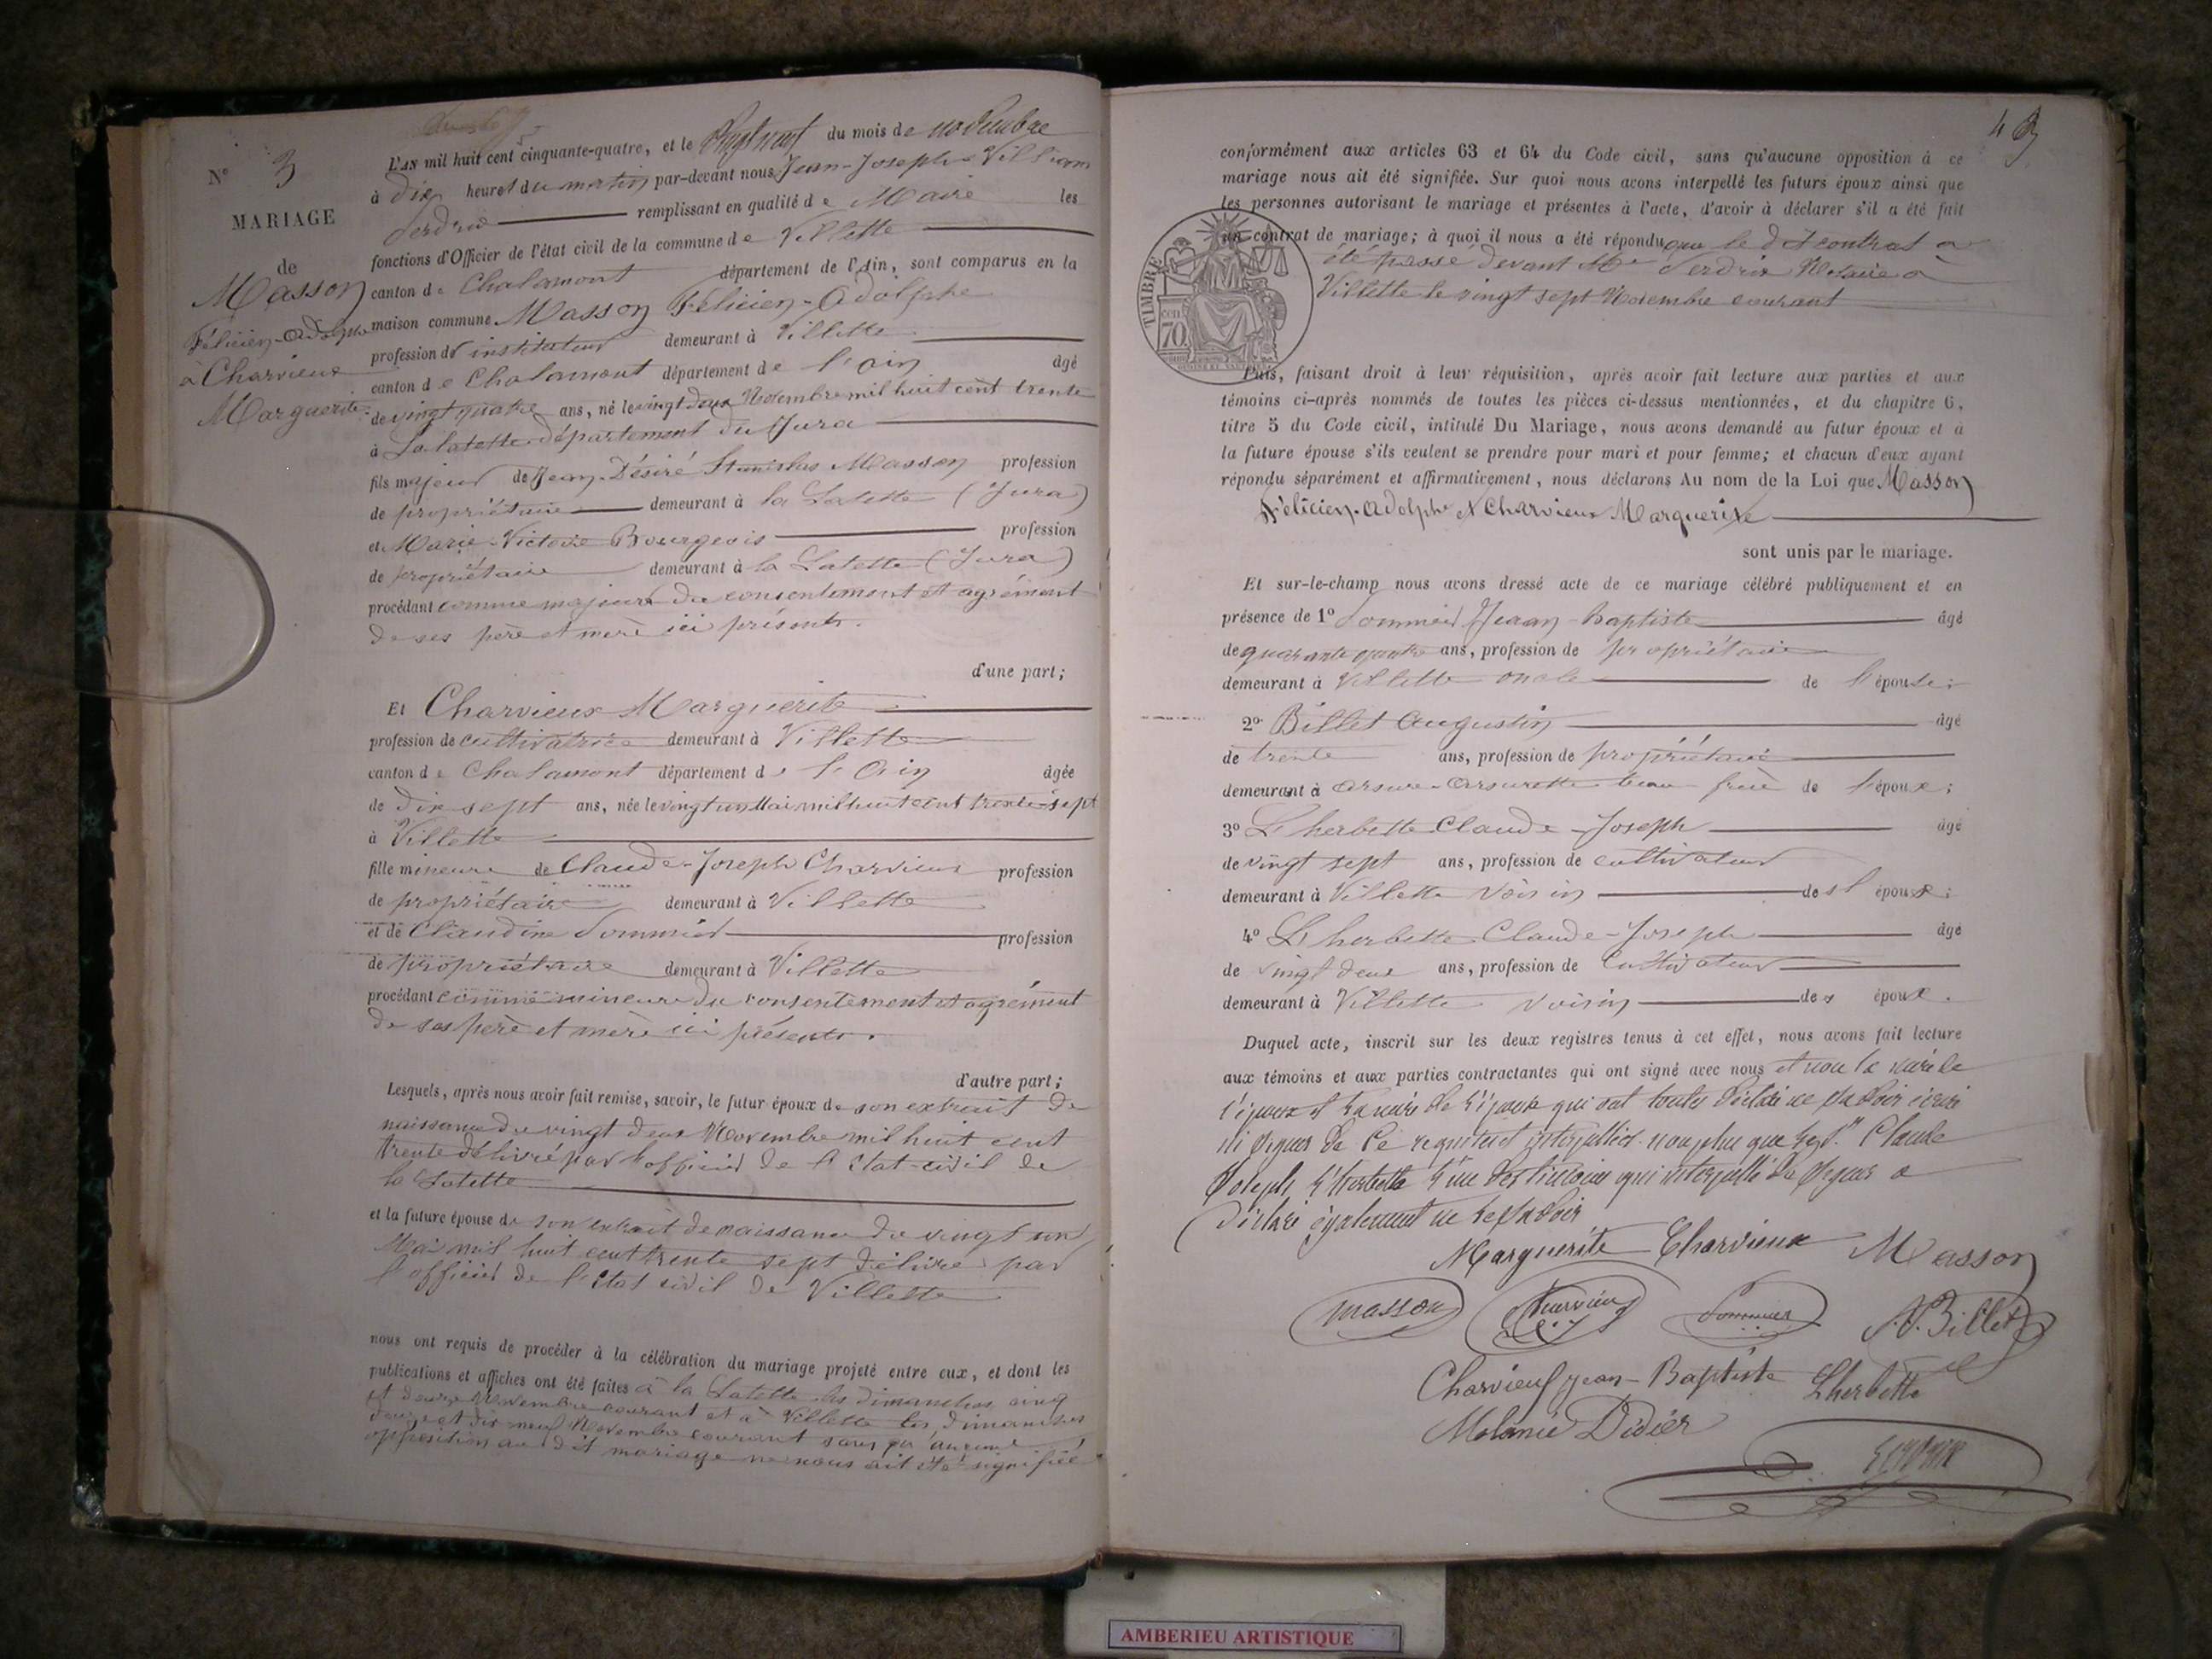 N° 3
MARIAGE
de
Masson
Félicien-Adolphe
a Charvieux
Marguerite
L'AN mil huit cent cinquante-quatre, et le Vingt neuf du mois de novembre
à dix heures du matin par-devant nous Jean-Joseph-William
Perdrix remplissant en qualité de Maire les
fonctions d'Officier de l'état civil de la commune de Villette
canton de Chalamont département de l'Ain, sont comparus en la
maison commune Masson Félicien-Adolphe
profession d' instituteur demeurant à Villette
canton de Chalamont département de l'ain âgé
de vingt quatre ans, né le vingt deux Novembre mil huit cent trente
à La latette département du Jura
fils majeur de Jean-Désiré Stanislas Masson profession
de propriétaire demeurant à la Latette (Jura)
et Marie-Victoire Bourgeois profession
de propriétaire demeurant à la Latette (Jura)
procédant comme majeur du consentement et agrément
de ses père et mère ici présents.
d'une part;
Et Charvieux Marguerite
profession de cultivatrice demeurant à Villette
canton de Chalamont département de l'Ain âgée
de dix sept ans, née le vingt un Mai mil huit cent trente-sept
à Villette
fille mineure de Claude-Joseph Charvieux profession
de propriétaire demeurant à Villette
et de Claudine Sommier profession
de propriétaire demeurant à Villette
procédant comme mineure du consentement et agrément
de ses père et mère ici présents.
d'autre part;
Lesquels, après nous avoir fait remise, savoir, le futur époux de son extrait de
naissance du vingt deux Novembre mil huit cent
trente délivré par l'officier de l'Etat-civil de
la Latette
et la future épouse de son extrait de naissance du vingt un
Mai mil huit cent trente sept délivré par
l'officier de l'Etat civil de Villette
nous ont requis de procéder à la célébration du mariage projeté entre eux, et dont les
publications et affiches ont été faites à la Latette les dimanches cinq
et douze Novembre courant et à Villette les dimanches
douze et dix neuf Novembre courant sans qu'aucune
opposition au dit mariage ne nous ait été signifiée
43
conformément aux articles 63 et 64 du Code civil, sans qu'aucune opposition à ce
mariage nous ait été signifiée. Sur quoi nous avons interpellé les futurs époux ainsi que
les personnes autorisant le mariage et présentes à l'acte, d'avoir à déclarer s'il a été fait
un contrat de mariage; à quoi il nous a été répondu que le dit contrat a
été passé devant Me Perdrix Notaire à
Villette le vingt sept Novembre courant
TIMBRE
cen
70
Puis, faisant droit à leur réquisition, après avoir fait lecture aux parties et aux
témoins ci-après nommés de toutes les pièces ci-dessus mentionnées, et du chapitre 6,
titre 5 du Code civil, intitulé Du Mariage, nous avons demandé au futur époux et à
la future épouse s'ils veulent se prendre pour mari et pour femme; et chacun d'eux ayant
répondu séparément et affirmativement, nous déclarons Au nom de la Loi que Masson
Félicien-Adolphe et Charvieux Marguerite
sont unis par le mariage.
Et sur-le-champ nous avons dressé acte de ce mariage célébré publiquement et en
présence de 1° Sommier Jean-baptiste âgé
de quarante quatre ans, profession de propriétaire
demeurant à Villette oncle de l'épouse;
2° Billet Augustin âgé
de trente ans, profession de propriétaire
demeurant à Arsure-Arsurette beau frère de l'époux;
3° Lherbette Claude-Joseph âgé
de vingt sept ans, profession de cultivateur
demeurant à Villette voisin des époux;
4° Lherbette Claude-Joseph âgé
de vingt deux ans, profession de Cultivateur
demeurant à Villette voisin des époux.
Duquel acte, inscrit sur les deux registres tenus à cet effet, nous avons fait lecture
aux témoins et aux parties contractantes qui ont signé avec nous et non la mère de
l'époux et la mère de l'épouse qui ont toutes déclaré ne savoir écrire
ni signer de ce requises et interpellées non plus que led. Sr Claude
Joseph Lherbette l'un des témoins qui interpellé de signer a
déclaré également ne le savoir
Marguerite Charvieux Masson
masson Charvieux Sommier A. Billet
Charvieux Jean-Baptiste Lherbette
Melanie Didier
Perdrix
AMBERIEU ARTISTIQUE